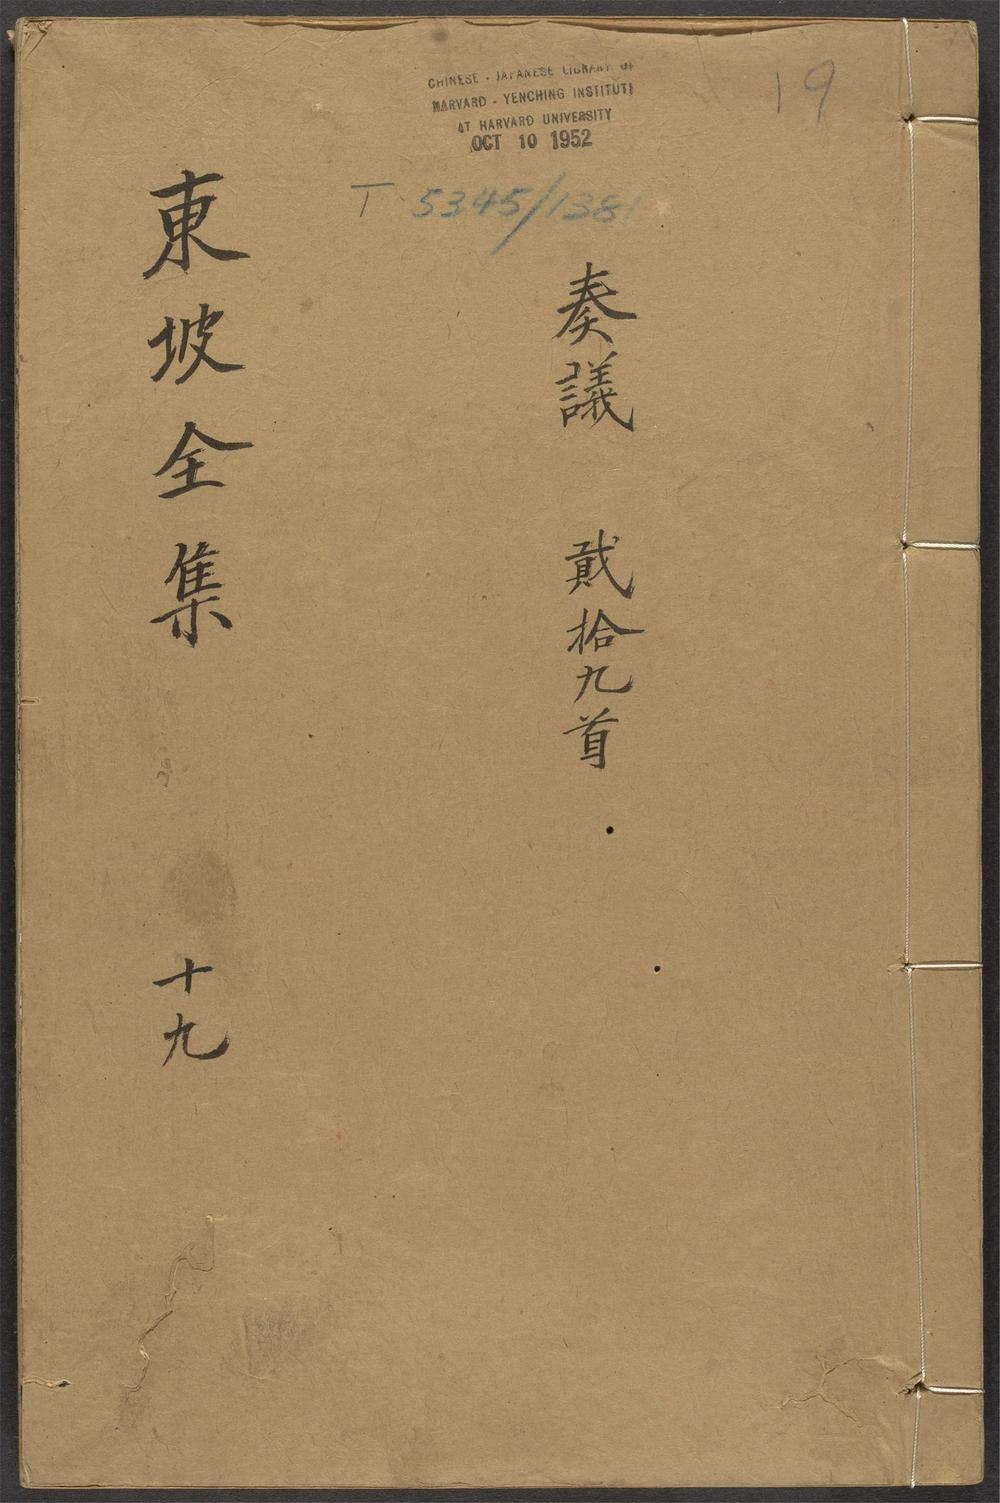 CHINESE - JAPANESE LIBRARY OF
HARVARD - YENCHING INSTITUTE
AT HARVARD UNIVERSITY
OCT 10 1952
19
T 5345/1381
奏議 貳拾九首
東坡全集 十九